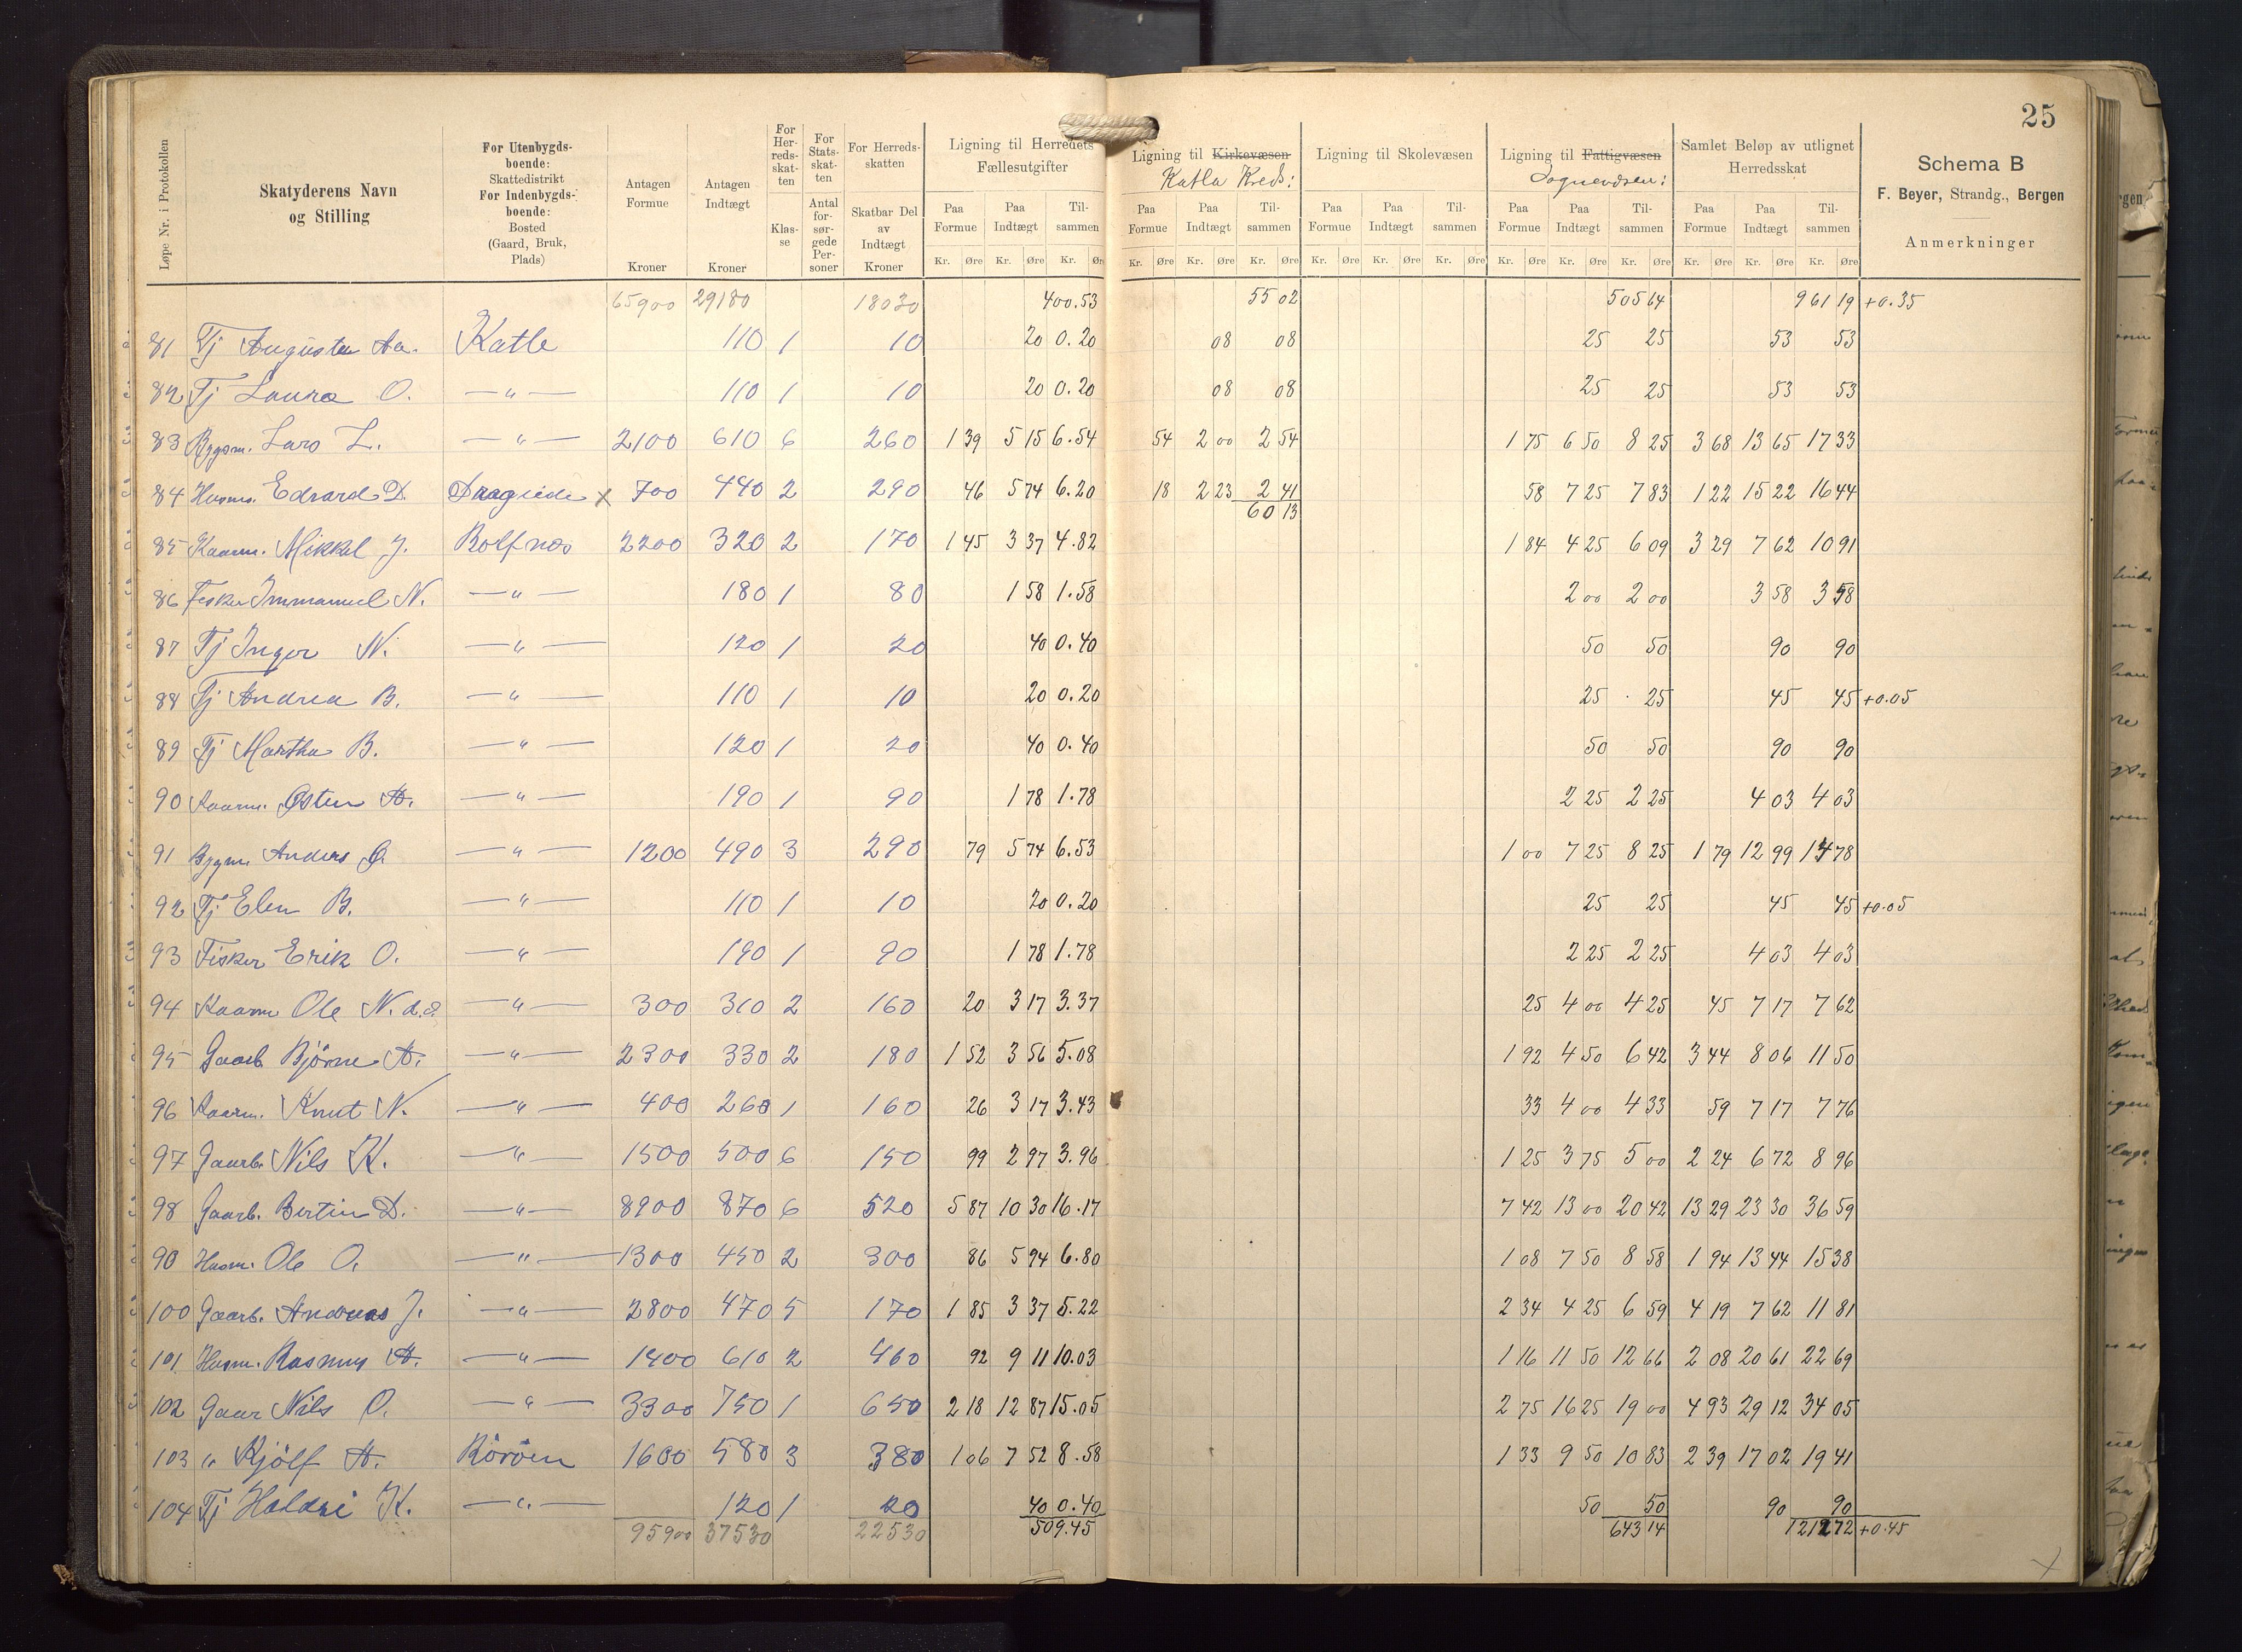 25
Løpe Nr. i Protokollen
Skatyderens Navn og Stilling
For Utenbygdsboende: Skattedistrikt For Indenbygdsboende: Bosted (Gaard, Bruk, Plads)
Antagen Formue Kroner
Antagen Indtægt Kroner
For Herredsskatten Klasse
For Statsskatten Antal forsørgede Personer
For Herredsskatten Skatbar Del av Indtægt Kroner
Ligning til Herredets Fællesutgifter
Ligning til Kirkevæsen Katla Kreds:
Ligning til Skolevæsen
Ligning til Fattigvæsen Sognevæsen:
Samlet Beløp av utlignet Herredsskat
Schema B
F. Beyer, Strandg., Bergen
Anmerkninger
Paa Formue Paa Indtægt Tilsammen Paa Formue Paa Indtægt Tilsammen Paa Formue Paa Indtægt Tilsammen Paa Formue Paa Indtægt Tilsammen Paa Formue Paa Indtægt Tilsammen
Kr. Øre Kr. Øre Kr. Øre Kr. Øre Kr. Øre Kr. Øre Kr. Øre Kr. Øre Kr. Øre Kr. Øre Kr. Øre Kr. Øre Kr. Øre Kr. Øre Kr. Øre
65900 29180 18030 400.53 55 02 505 64 961 19 +0.35
81 Tj Augusta Aa. Katle 110 1 10 20 0.20 08 08 25 25 53 53
82 Tj Laura O. — " — 110 1 10 20 0.20 08 08 25 25 53 53
83 Bygsm. Lars L. — " — 2100 610 6 260 1 39 5 15 6.54 54 2 00 2 54 1 75 6 50 8 25 3 68 13 65 17 33
84 Husm. Edvard D. x 700 440 2 290 46 5 74 6.20 18 2 23 2 41 58 7 25 7 83 1 22 15 22 16 44
60 13
85 Kaarm. Mikkel J. Bolfnæs 2200 320 2 170 1 45 3 37 4.82 1 84 4 25 6 09 3 29 7 62 10 91
86 Fisker Immanuel N. — " — 180 1 80 1 58 1.58 2 00 2 00 3 58 3 58
87 Tj Inger N. — " — 120 1 20 40 0.40 50 50 90 90
88 Tj Andrea B. — " — 110 1 10 20 0.20 25 25 45 45 +0.05
89 Tj Martha B. — " — 120 1 20 40 0.40 50 50 90 90
90 Kaarm. Østen A. — " — 190 1 90 1 78 1.78 2 25 2 25 4 03 4 03
91 Bygm. Anders Ø. — " — 1200 490 3 290 79 5 74 6.53 1 00 7 25 8 25 1 79 12 99 14 78
92 Tj Elen B. — " — 110 1 10 20 0.20 25 25 45 45 +0.05
93 Fisker Erik O. — " — 190 1 90 1 78 1.78 2 25 2 25 4 03 4 03
94 Kaarm Ole N. d.e. — " — 300 310 2 160 20 3 17 3.37 25 4 00 4 25 45 7 17 7 62
95 Gaarb. Bjørne A. — " — 2300 330 2 180 1 52 3 56 5.08 1 92 4 50 6 42 3 44 8 06 11 50
96 Kaarm. Knut N. — " — 400 260 1 160 26 3 17 3.43 33 4 00 4 33 59 7 17 7 76
97 Gaarb. Nils K. — " — 1500 500 6 150 99 2 97 3.96 1 25 3 75 5 00 2 24 6 72 8 96
98 Gaarb. Bertin D. — " — 8900 870 6 520 5 87 10 30 16.17 7 42 13 00 20 42 13 29 23 30 36 59
90 Husm. Ole O. — " — 1300 450 2 300 86 5 94 6.80 1 08 7 50 8 58 1 94 13 44 15 38
100 Gaarb. Andreas J. — " — 2800 470 5 170 1 85 3 37 5.22 2 34 4 25 6 59 4 19 7 62 11 81
101 Husm. Rasmus A. — " — 1400 610 2 460 92 9 11 10.03 1 16 11 50 12 66 2 08 20 61 22 69
102 Gaar Nils O. — " — 3300 750 1 650 2 18 12 87 15.05 2 75 16 25 19 00 4 93 29 12 34 05
103 " Kjølf A. Rörøen 1600 580 3 380 1 06 7 52 8.58 1 33 9 50 10 83 2 39 17 02 19 41
104 Tj Haldri K. — " — 120 1 20 40 0.40 50 50 90 90
95900 37530 22530 509.45 643 14 1212 72 +0.45